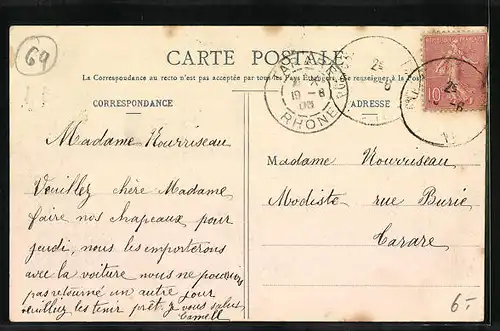 69
CARTE POSTALE
La Correspondance au recto n'est pas acceptée par tous les Pays Étrangers. Se renseigner à la Poste
CORRESPONDANCE
ADRESSE
19 - 8
RHONE
REPUBLIQUE FRANÇAISE
10
Madame Nourriseau
Veuillez chère Madame
faire nos chapeaux pour
jeudi, nous les emporterons
avec la voiture nous ne pouvions
pas retourné un autre jour
veuillez les tenir prêt. je vous salut
Camell
Madame Nourriseau
Modiste rue Burie
Tarare
6-